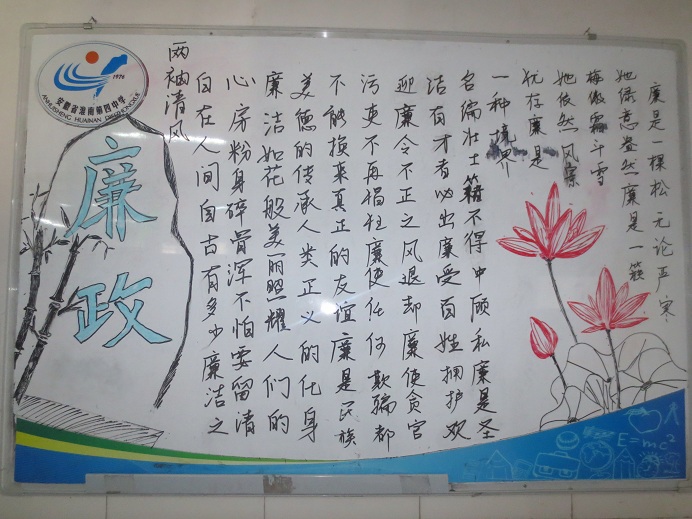 廉是一棵松无论严寒
她绿意盎然廉是一簇
梅傲霜斗雪
她依然风景
犹存廉是
一种境界
名编壮士籍不得中顾私廉是圣
洁有才者必出廉受百姓拥护欢
迎廉令不正之风退却廉使贪官
污吏不再猖狂廉使任何欺骗都
不能换来真正的友谊廉是民族
美德的传承人类正义的化身
廉洁如花般美丽照耀人们的
心房粉身碎骨浑不怕要留清
白在人间自古有多少廉洁之
两袖清风
廉政
1976
安徽省淮南第四中学
ANHUISHENG HUAINAN DISIZHONGXUE
E=mc²